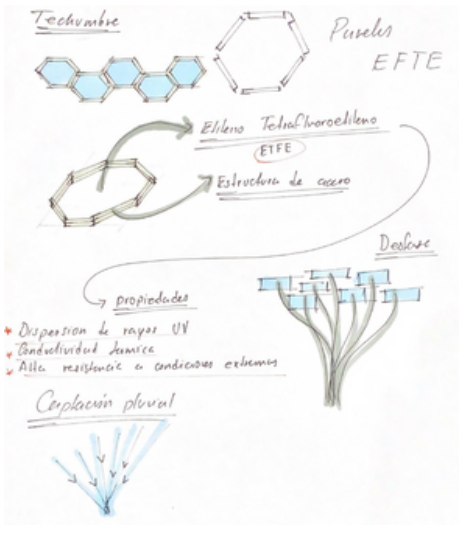 Techumbre
Paneles
EFTE
Etileno Tetrafluoroetileno
ETFE
Estructura de acero
Desfase
propiedades
* Dispersion de rayos UV
* Conductividad termica
* Alta resistencia a condiciones extremas
Captación pluvial